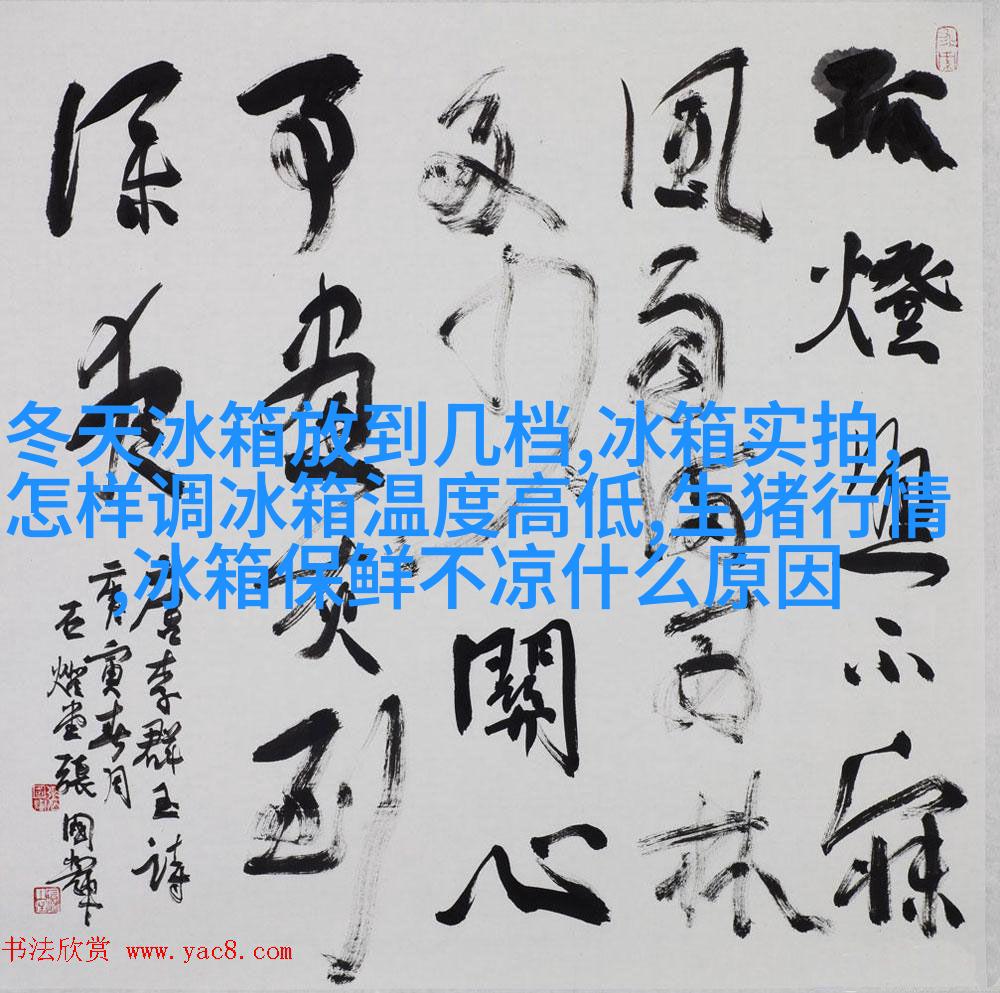 孤燈不寐
風雨西林
多少關心
事書灰到
深夜
唐李群玉詩
庚寅春月
張國輝
冬天冰箱放到几档,冰箱实拍,
怎样调冰箱温度高低,生猪行情
,冰箱保鲜不凉什么原因
书法欣赏 www.yac8.com